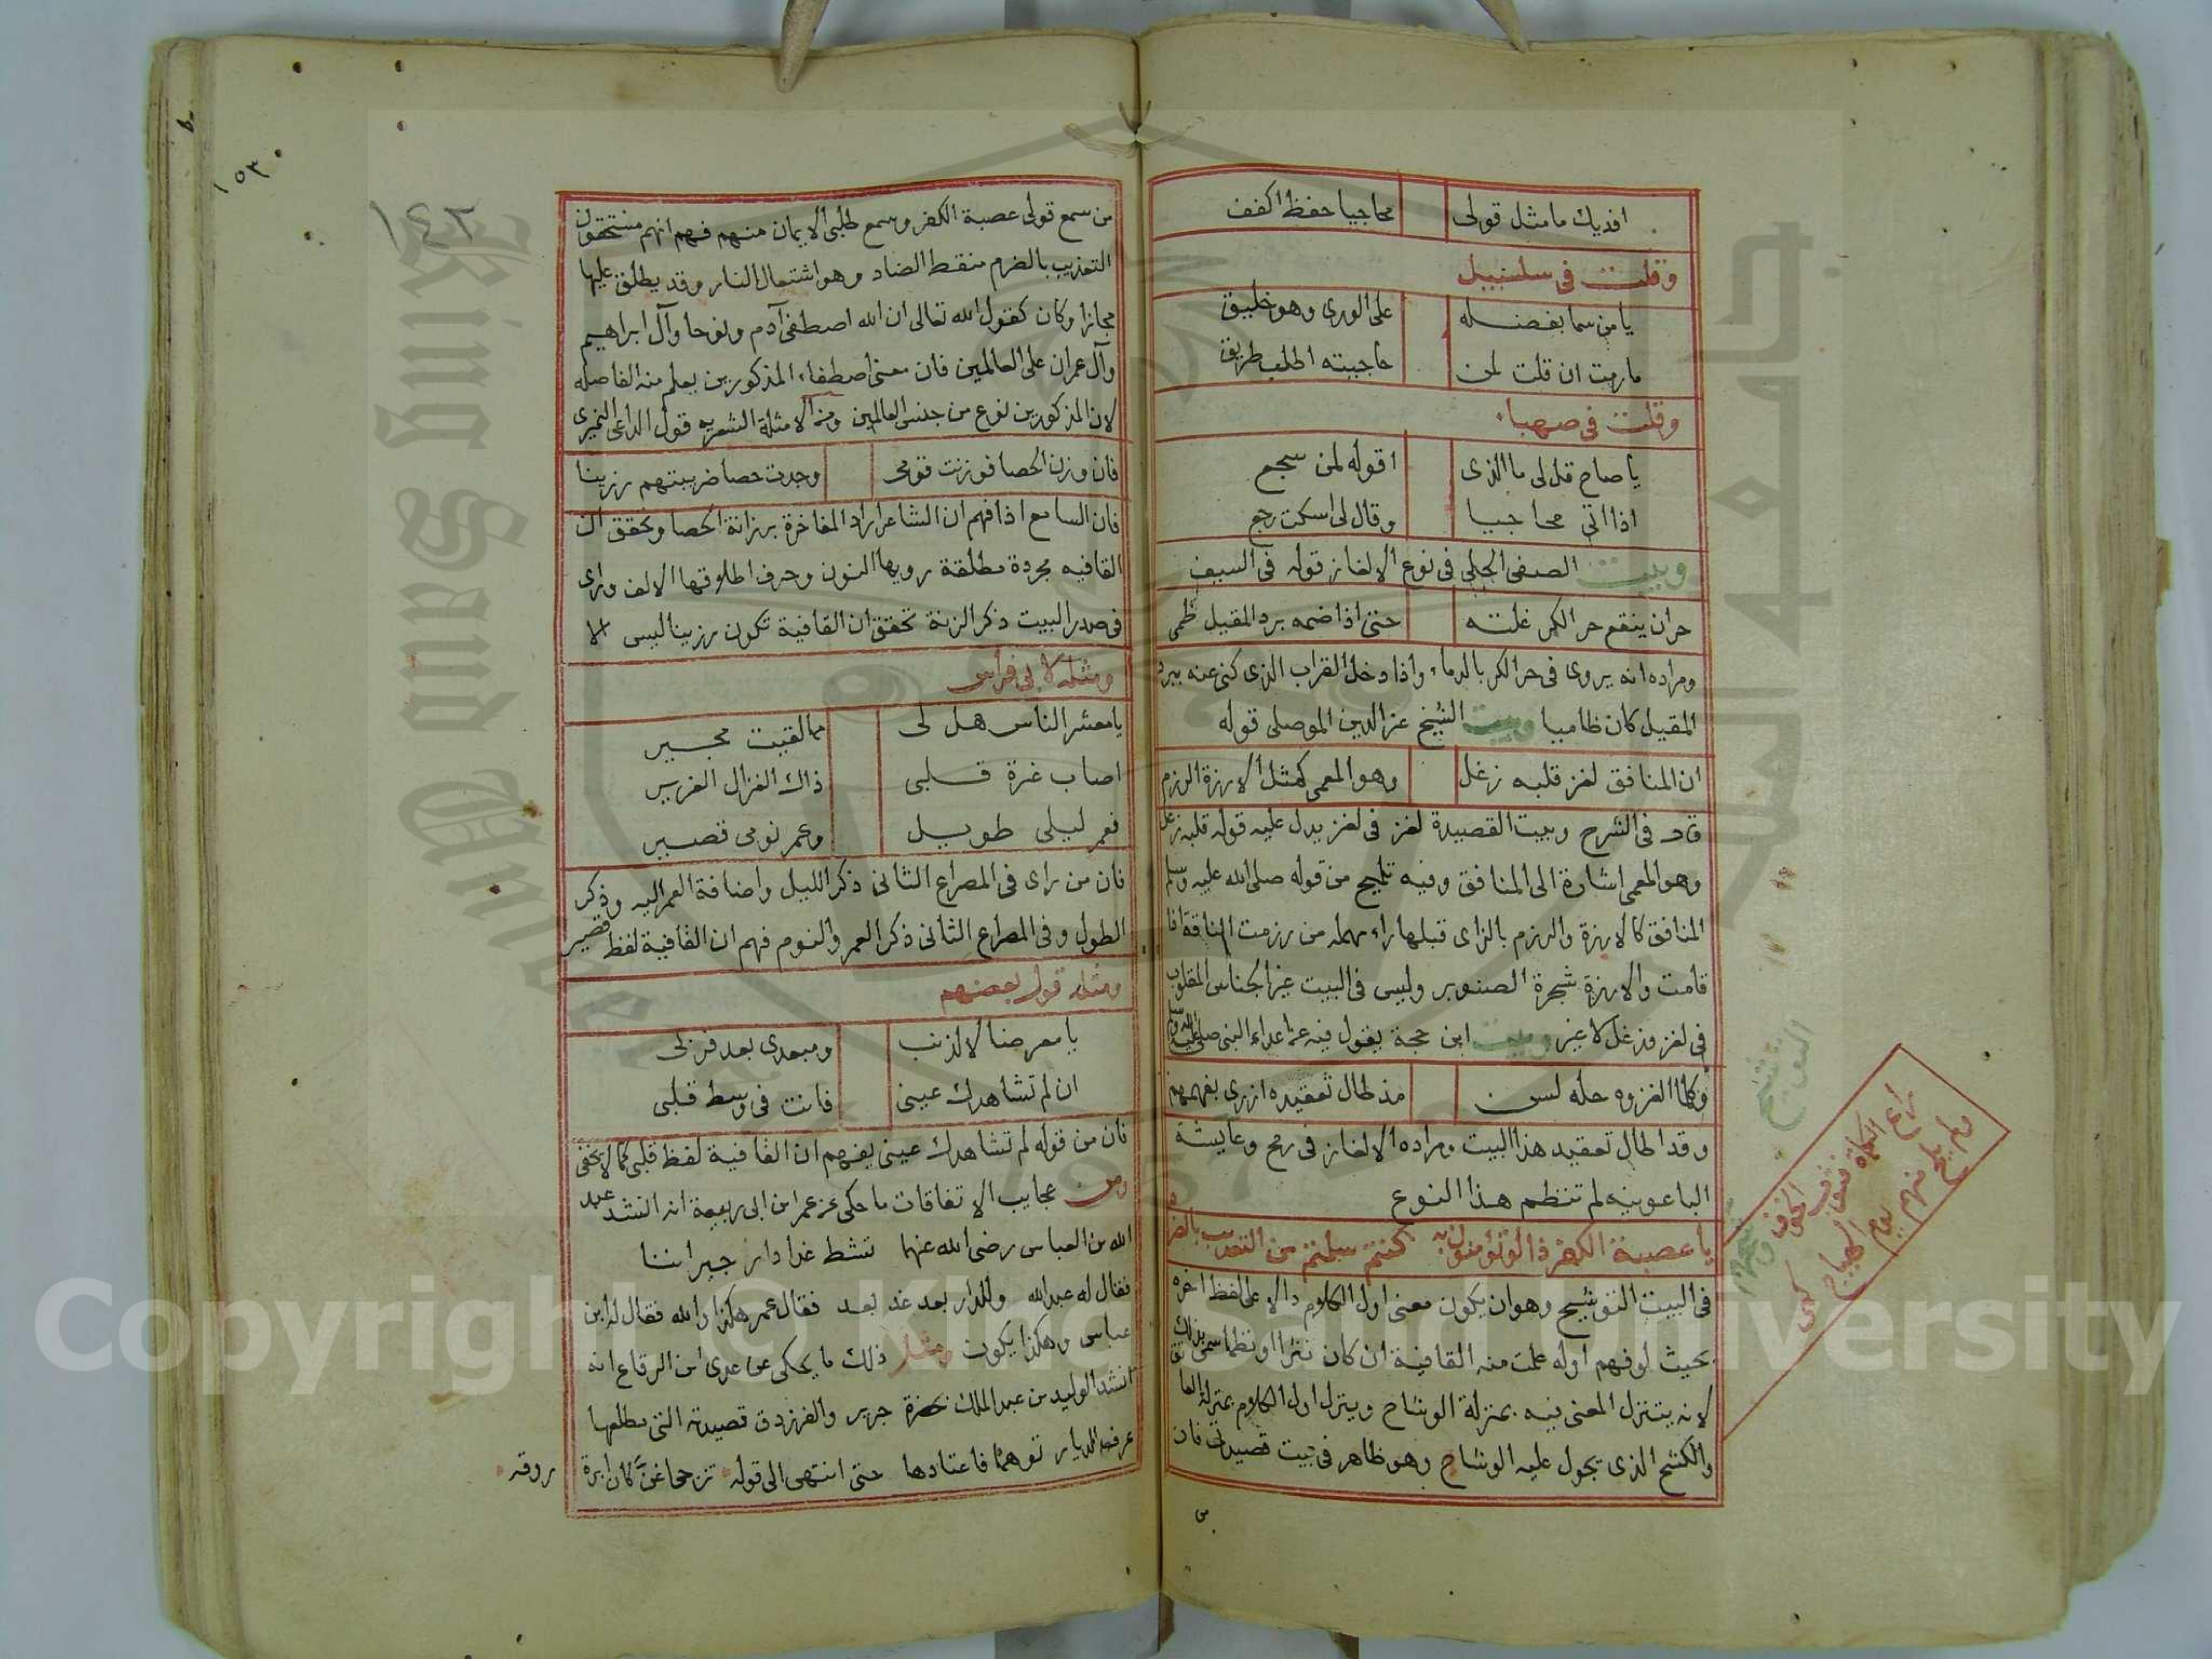 افديك ما مثل قولى محاجيا حفظ اكفف
وقلت فى سلسبيل
يا من سما بفضله على الورى وهو خليق
ماربت ان قلت لمن حاجيته اطلب طريق
وقلت فى صهباء
يا صاح قل لى ما الذى اقوله لمن سجع
اذا اتى محاجيا وقال لى اسكت رجع
وبيت الصفى الحلى فى نوع الالغاز قوله فى السيف
حران ينقع حر الكر غلته حتى اذا ضمه برد المقيل ظمى
ومراده انه يروى فى حر الكر بالدماء واذا دخل القراب الذى كنى عنه ببرد
المقيل كان ظاميا وبيت الشيخ عز الدين الموصلى قوله
ان المنافق لغز قلبه زغل وهو المعمى كمثل الارزة الرزم
قال فى الشرح وبيت القصيدة لغز فى لغز يدل عليه قوله قلبه زغل
وهو المعمى اشارة الى المنافق وفيه تلميح من قوله صلى الله عليه وسلم
المنافق كالارزة والرزم بالزاى قبلها راء مهمله من رزمت الناقة اذا
قامت والارزة شجرة الصنوبر وليس فى البيت غير الجناس المقلوب
فى لغز وزغل لا غير وبيت ابن حجة يقول فيه عن اعداء النبى صلى الله عليه وسلم
وكلما الغزوه حله لسن مذ طال تعقيده ازرى بفهمهم
وقد اطال تعقيد هذا البيت ومراده الالغاز فى رمح وعايشة
الباعونيه لم تنظم هذا النوع
يا عصبة الكفر ذا لو تؤمنون به كنتم سلمتم من التعذيب بالضرم
فى البيت التوشيح وهو ان يكون معنى اول الكلام دالا على لفظ اخره
بحيث لو فهم اوله علمت منه القافية ان كان نثرا او نظما سمى بذلك
لانه يتنزل المعنى فيه بمنزلة الوشاح وينزل اول الكلام بمنزلة العا
والكشح الذى يجول عليه الوشاح وهو ظاهر فى بيت قصيدتى فان
من
التوشيح
١٥٣
١٤٢
من سمع قولى عصبة الكفر وسمع طلبى الايمان منهم فهم انهم مستحقون
التعذيب بالضرم منقط الضاد وهو اشتعال النار وقد يطلق عليها
مجازا وكان كقول الله تعالى ان الله اصطفى آدم ونوحا وآل ابراهيم
وآل عمران على العالمين فان معنى اصطفاء المذكورين يعلم منه الفاصله
لان المذكورين نوع من جنس العالمين ومن الامثلة الشعريه قول الراعى النميرى
فان وزن الحصا فوزنت قومى وجدت حصا ضريبتهم رزينا
فان السامع اذا فهم ان الشاعر اراد المفاخرة برزانة الحصا وتحقق ان
القافيه مجردة مطلقة رويها النون وحرف اطلاقها الالف وراى
فى صدر البيت ذكر الزنة تحقق ان القافية تكون رزينا ليس الا
ومثله لابى فراس
يا معشر الناس هل لى مما لقيت مجير
اصاب غرة قلبى ذاك الغزال الغرير
فعمر ليلى طويل وعمر نومى قصير
فان من راى فى المصراع الثانى ذكر الليل واضافة العمر اليه وذكر
الطول وفى المصراع الثانى ذكر العمر والنوم فهم ان القافية لفظ قصير
ومثله قول بعضهم
يا معرضا لا لذنب ومبعدى بعد قربى
ان لم تشاهدك عينى فانت فى وسط قلبى
فان من قوله لم تشاهدك عينى يفهم ان القافية لفظ قلبى كما لا يخفى
ومن عجايب الاتفاقات ما حكى عن عمر ابن ابى ربيعة انه انشد عبد
الله بن العباس رضى الله عنهما تشط غدا دار جيراننا
فقال له عبدالله وللدار بعد غد بعد فقال عمر هكذا والله فقال له ابن
عباس وهكذا يكون ومثل ذلك ما يحكى عن عدى ابن الرقاع انه
انشد الوليد بن عبد الملك بحضرة جرير والفرزدق قصيدته التى مطلعها
عرف الديار توهما فاعتادها حتى انتهى الى قوله تزجى اغن كان ابرة
روقه